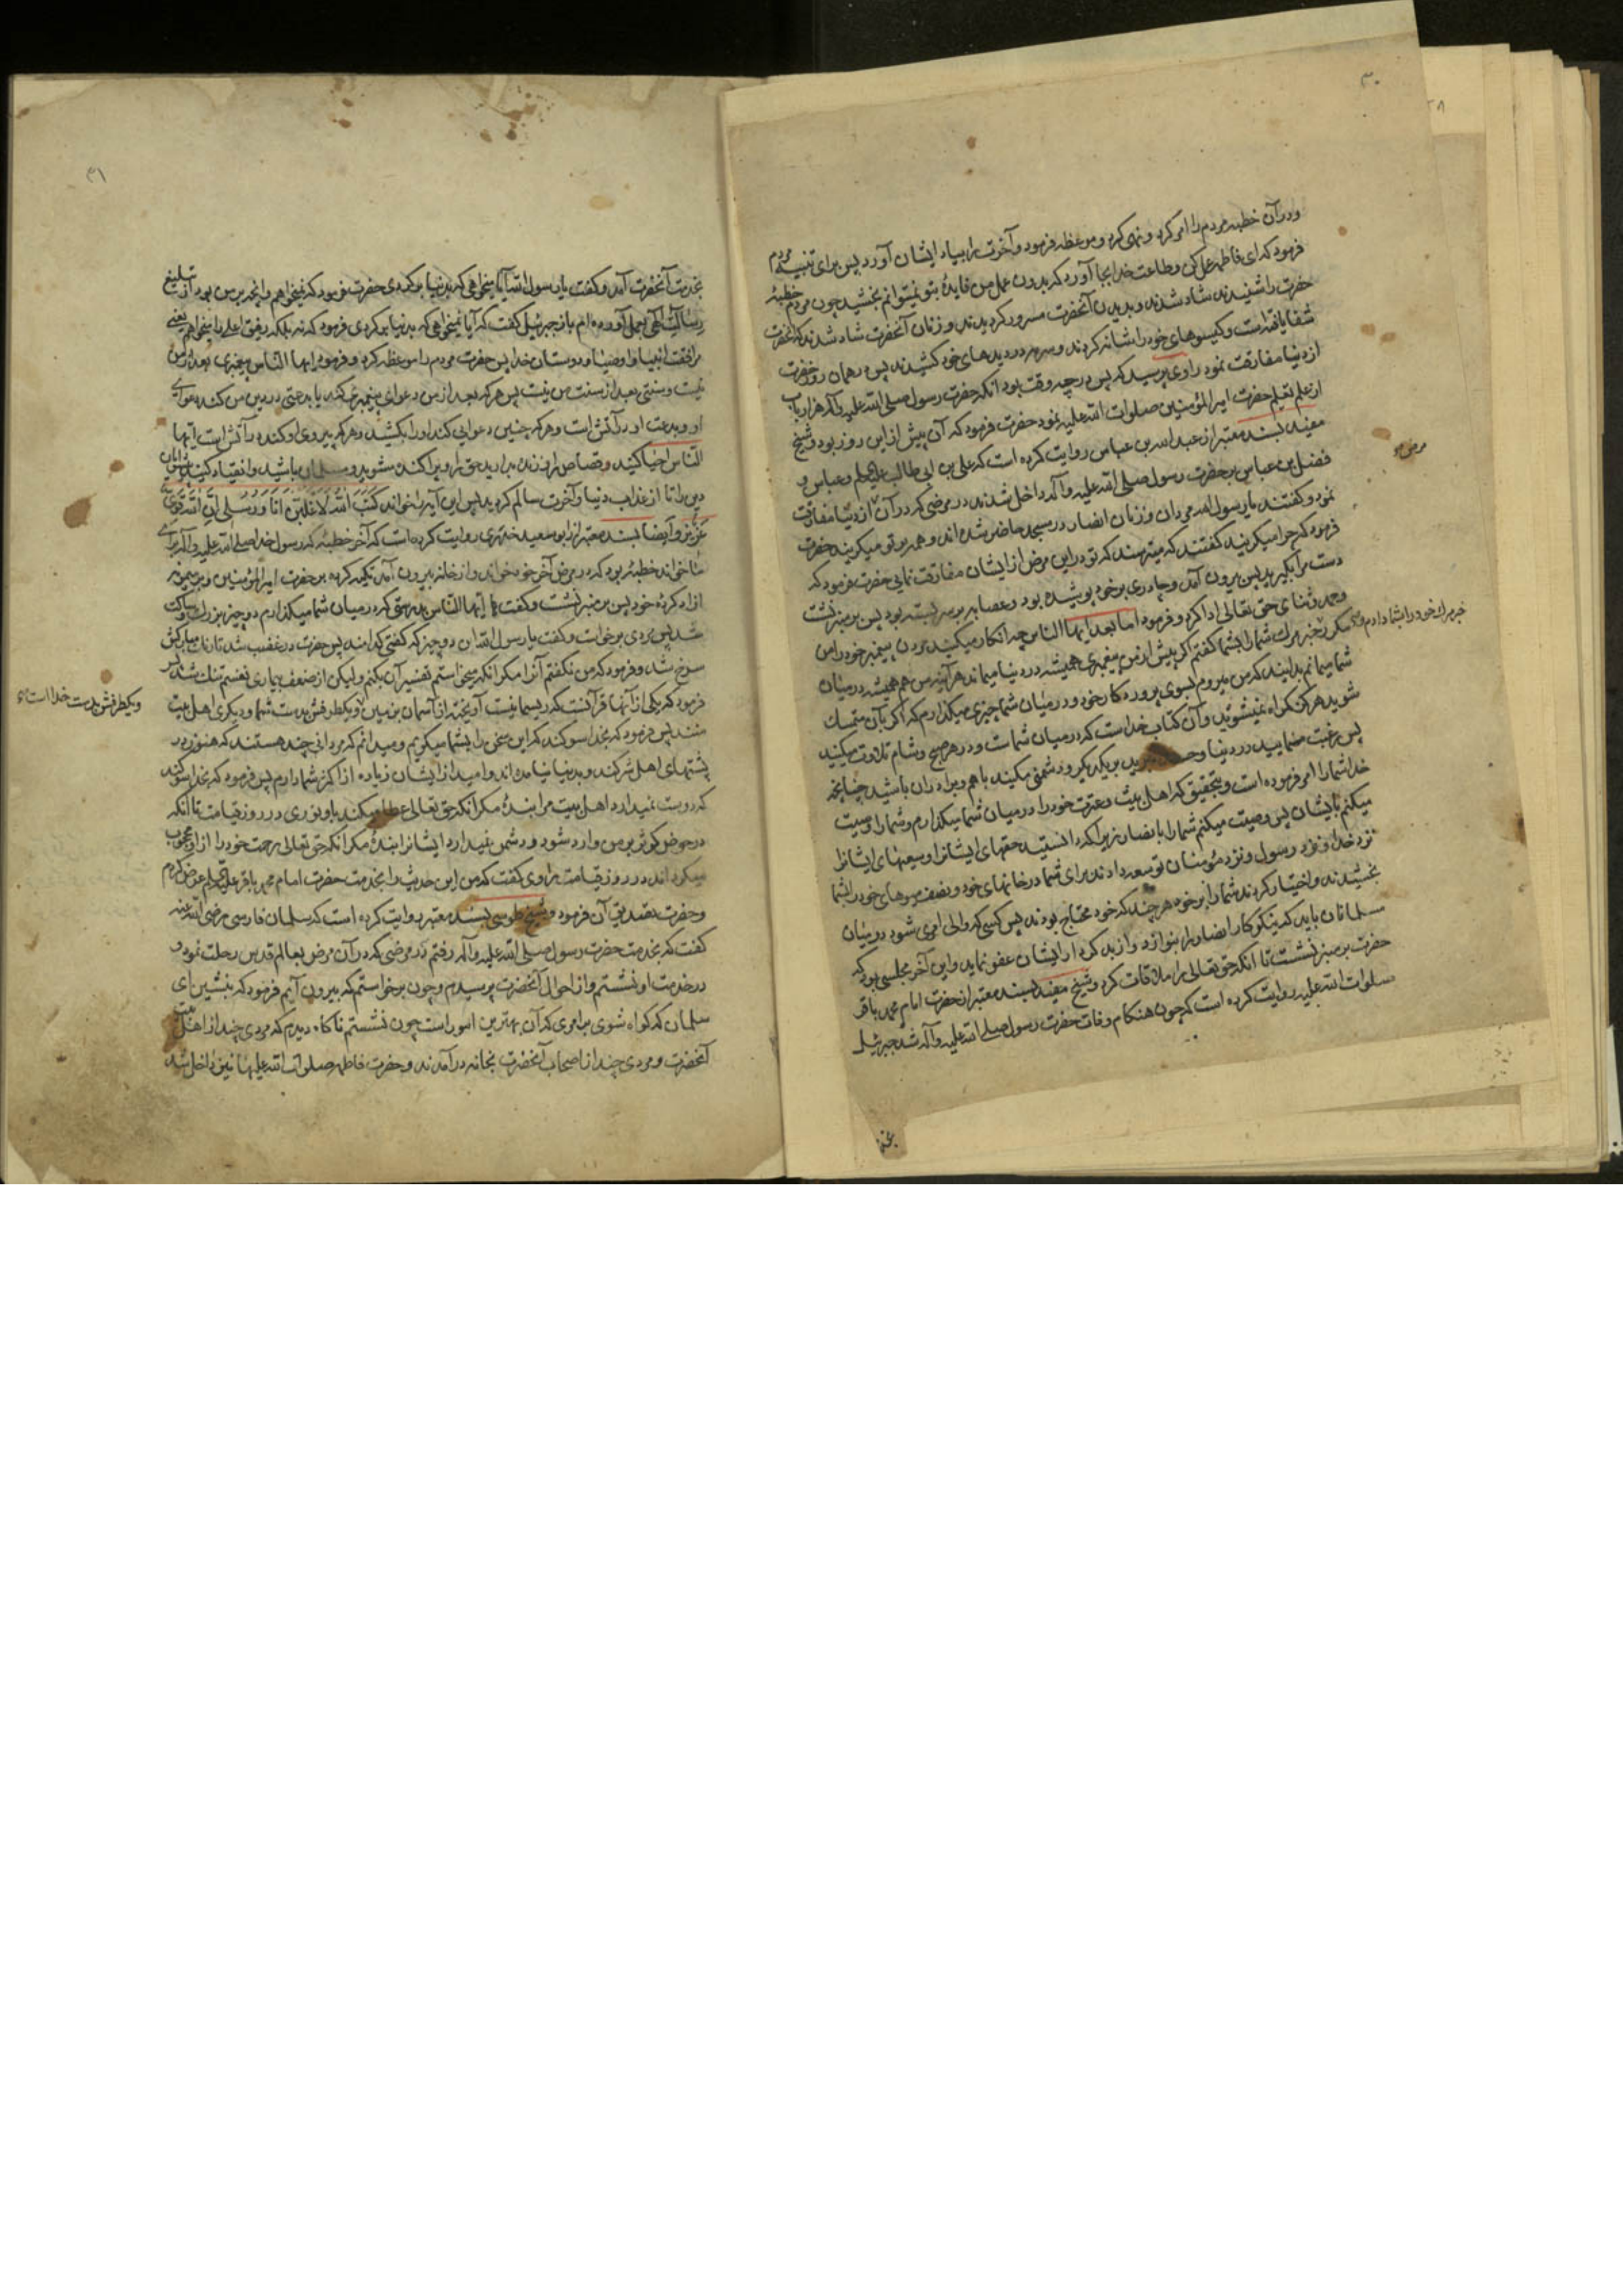 ۳۰
ودرآن خطبه مردم را امر کرد و نهی کرد و موعظه فرمود و آخرت را بیاد ایشان آورد پس برای تنبیه مردم
فرمود که ای فاطمه عمل کن و طاعت خدا بجا آور که بدون عمل من فایدهٔ بتو نمیتوانم بخشید چون مردم خطبهٔ
حضرت را شنیدند شاد شدند و بدیدن آنحضرت مسرور کردیدند و زنان آنحضرت شاد شدند که آنحضرت
شفا یافته است و کیسوهای خود را شانه کردند و سرمه در دیدهای خود کشیدند پس در همان روز حضرت
از دنیا مفارقت نمود راوی پرسید که پس در چه وقت بود آنکه حضرت رسول صلی الله علیه وآله هزار باب
از علم تعلیم حضرت امیرالمؤمنین صلوات الله علیه نمود حضرت فرمود که آن پیش از این روز بود و شیخ
مفید بسند معتبر از عبدالله بن عباس روایت کرده است که علی بن ابی طالب علیهم السلام و عباس و
فضل بن عباس بر حضرت رسول صلی الله علیه وآله داخل شدند در مرضی که در آن از دنیا مفارقت
نمود و کفتند یا رسول الله مردان و زنان انصار در مسجد حاضر شده اند و همه بر تو میکریند حضرت
فرمود که چرا میکریند کفتند که میترسند که تو در این مرض از ایشان مفارقت نمایی حضرت فرمود که
دست مرا بکیرید پس بیرون آمد و چادری بر خود پوشیده بود و عصابه بر سر بسته بود پس بر منبر نشست
و حمد و ثنای حق تعالی ادا کرد و فرمود اما بعد ایها الناس چه انکار میکنید مردن پیغمبر خود را من
مکرر خبر مرک شما را بشما کفتم اکر پیش از من پیغمبری همیشه در دنیا میماند هرآینه من هم همیشه در میان
خبر مرک خود را بشما دادم و
شما میماندم بدانید که من میروم بسوی پروردکار خود و در میان شما چیزی میکذارم که اکر بآن متمسک
شوید هرکز کمراه نمیشوید و آن کتاب خداست که در میان شماست و در هر صبح و شام تلاوت میکنید
پس رغبت منمایید در دنیا و حسد مبرید بر یکدیکر و دشمنی مکنید با هم و برادران باشید چنانچه
خدا شما را امر فرموده است و بتحقیق که اهل بیت و عترت خود را در میان شما میکذارم و شما را وصیت
میکنم بایشان پس وصیت میکنم شما را بانصار زیرا که دانستید حقهای ایشانرا و سعیهای ایشانرا
نزد خدا و نزد رسول و نزد مؤمنان توسعه دادند برای شما در خانهای خود و نصف میوهای خود را بشما
بخشیدند و اختیار کردند شما را بر خود هر چند که خود محتاج بودند پس کسی که والی امری شود در میان
مسلمانان باید که نیکوکار انصار را بنوازد و از بدکردار ایشان عفو نماید و این آخر مجلسی بود که
حضرت بر منبر نشست تا آنکه حق تعالی را ملاقات کرد و شیخ مفید بسند معتبر از حضرت امام محمد باقر
صلوات الله علیه روایت کرده است که چون هنکام وفات حضرت رسول صلی الله علیه وآله شد جبرئیل
۳۱
بخدمت آنحضرت آمد و کفت یا رسول الله آیا میخواهی که بدنیا برکردی حضرت فرمود که نمیخواهم و آنچه بر من بود از تبلیغ
رسالت الهی بعمل آورده ام باز جبرئیل کفت که آیا نمیخواهی که بدنیا برکردی فرمود که نه بلکه رفیق اعلی را میخواهم یعنی
مرافقت انبیا و اوصیا و دوستان خدا پس حضرت مردم را موعظه کرد و فرمود ایها الناس پیغمبری بعد از من
نیست و سنتی بعد از سنت من نیست پس هر که بعد از من دعوای پیغمبری کند یا بدعتی در دین من کند دعوای
او و بدعت او در آتش است و هر که چنین دعوایی کند او را بکشید و هر که پیروی او کند در آتش است ایها
الناس احیا کنید قصاص را و زنده بدارید حق را و پراکنده مشوید و مسلمان باشید و انقیاد کنید
دین را تا از عذاب دنیا و آخرت سالم کردید پس این آیه را خواند کَتَبَ اللهُ لَاَغْلِبَنَّ اَنَا وَ رُسُلی اِنَّ اللهَ قَوِیٌّ
عَزیز و ایضا بسند معتبر از ابوسعید خدری روایت کرده است که آخر خطبهٔ که رسول خدا صلی الله علیه وآله برای
ما خواند خطبهٔ بود که در مرض آخر خود خواند و از خانه بیرون آمد تکیه کرده بر حضرت امیرالمؤمنین و بر میمونه
آزاد کردهٔ خود پس بر منبر نشست و کفت ایها الناس بدرستی که در میان شما میکذارم دو چیز بزرک و ساکت
شد پس مردی برخاست و کفت یا رسول الله آن دو چیز که کفتی کدامند پس حضرت در غضب شد تا رنک مبارکش
سرخ شد و فرمود که من نکفتم آنرا مکر آنکه میخواستم تفسیر آن بکنم ولیکن از ضعف بیماری نفسم تنک شد پس
فرمود که یکی از آنها قرآنست که ریسمانیست آویخته از آسمان بزمین و یکطرفش بدست شما و دیکری اهل بیت
ویکطرفش بدست خدا است
منند پس فرمود که بخدا سوکند که این سخن را بشما میکویم و میدانم که مردانی چند هستند که هنوز در
پشتهای اهل شرکند و بدنیا نیامده اند و امید از ایشان زیاده از اکثر شما دارم پس فرمود که بخدا سوکند
که دوست نمیدارد اهل بیت مرا بندهٔ مکر آنکه حق تعالی عطا میکند باو نوری در روز قیامت تا آنکه
در حوض کوثر بر من وارد شود و دشمن نمیدارد ایشانرا بندهٔ مکر آنکه حق تعالی رحمت خود را از او محجوب
میکرداند در روز قیامت راوی کفت که من این حدیث را بخدمت حضرت امام محمد باقر علیه السلام عرض کردم
و حضرت تصدیق آن فرمود و شیخ طوسی بسند معتبر روایت کرده است که سلمان فارسی رضی الله عنه
کفت که بخدمت حضرت رسول صلی الله علیه وآله رفتم در مرضی که در آن مرض بعالم قدس رحلت نمود و
در خدمت او نشستم و از احوال آنحضرت پرسیدم و چون برخواستم که بیرون آیم فرمود که بنشین ای
سلمان که کواه شوی بر امری که آن بهترین امور است چون نشستم ناکاه دیدم که مردی چند از اهل بیت
آنحضرت و مردی چند از اصحاب آنحضرت بخانه درآمدند و حضرت فاطمه صلوات الله علیها نیز داخل شد